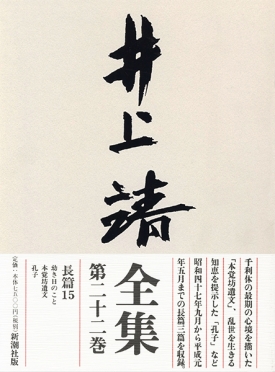 井上靖
全集
第二十二巻
千利休の最期の心境を描いた
「本覚坊遺文」、乱世を生きる
知恵を提示した「孔子」など
昭和四十七年九月から平成元
年五月までの長篇三篇を収録。
長篇15
幼き日のこと
本覚坊遺文
孔子
定価：本体七五〇〇円（税別）
新潮社版